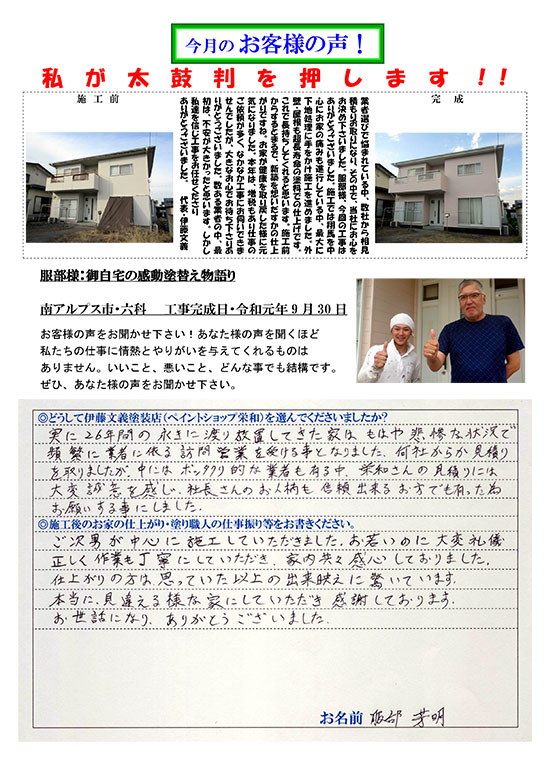 今月の お客様の声！
私が太鼓判を押します！！
施工前
完成
業者選びで悩まれている中、数社から相見
積もりお取りになり、その中で、当社にお心を
お決め下さいました服部様、今回の工事は
ありがとうございました。施工では翔馬を中
心にお家の痛みも進行している中、最大に
下地処理に手をかけ施工を進めました。外
壁・屋根も超長寿命の塗料での仕上げです。
これで長持ちしてくれると思います。施工前
からすると、新築を想いだすかの仕上
がりですね。お家が健康を取り戻した様に元
気になりました！本年は、増税もあり仕事の
ご依頼が多く、なかなか工事にお伺いできま
せんでしたが、大きなお心でお待ち下さりあ
りがとうございました。数ある業者の中、最
初は、不安が大きかったと思います。しかし
私達を信じ工事をお任せくださり
ありがとうございました。 代表・伊藤文義
服部様：御自宅の感動塗替え物語り
南アルプス市・六科 工事完成日・令和元年９月３０日
お客様の声をお聞かせ下さい！あなた様の声を聞くほど
私たちの仕事に情熱とやりがいを与えてくれるものは
ありません。いいこと、悪いこと、どんな事でも結構です。
ぜひ、あなた様の声をお聞かせ下さい。
◎どうして伊藤文義塗装店（ペイントショップ栄和）を選んでくださいましたか？
実に26年間の永きに渡り放置してきた家は、もはや悲惨な状況で
頻繁に業者に依る訪問営業を受ける事となりました。何社からか見積り
を取りましたが、中にはボッタクリ的な業者も有る中、栄和さんの見積りには
大変誠意を感じ、社長さんのお人柄も信頼出来るお方でも有った為
お願いする事にしました。
◎施工後のお家の仕上がり・塗り職人の仕事振り等をお書きください。
ご次男が中心に施工していただきました。お若いのに大変礼儀
正しく作業も丁寧にしていただき、家内共々感心しておりました。
仕上がりの方は、思っていた以上の出来映えに驚いています。
本当に、見違える様な家にしていただき感謝しております。
お世話になり、ありがとうございました。
お名前 服部 芳明